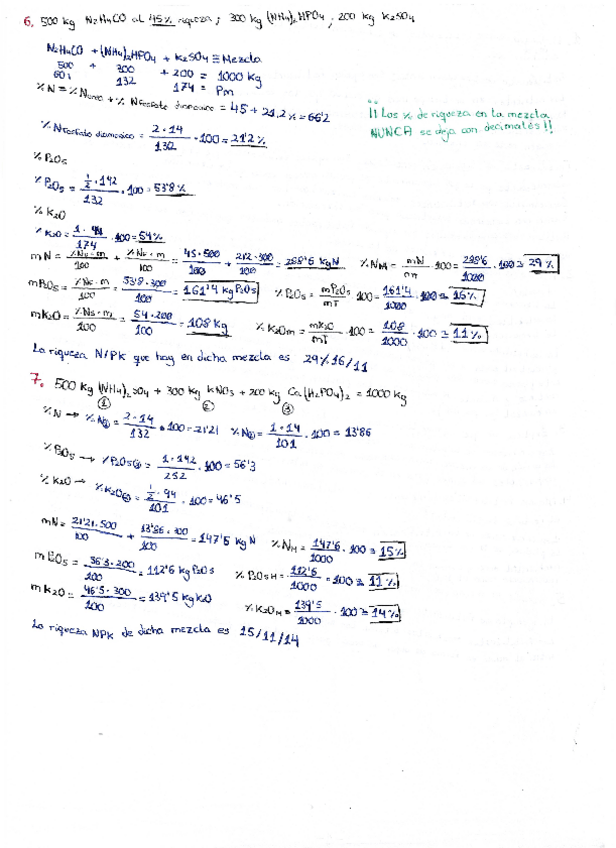 6. 500 kg N2H4CO al 45% riqueza; 300 kg (NH4)2HPO4; 200 kg K2SO4
N2H4CO + (NH4)2HPO4 + K2SO4 ≡ Mezcla
500 + 300 + 200 = 1000 Kg
60 132 174 = Pm
!! Los % de riqueza en la mezcla
NUNCA se deja con decimales!!
% N = % Nurea + % N fosfato diamonico = 45 + 21,2% = 66'2
% N fosfato diamonico = 2·14/132 · 100 = 21'2 %
% P2O5
% P2O5 = 1/2·142/132 · 100 = 53'8 %
% K2O
% K2O = 1·94/174 · 100 = 54%
mN = %Ns·m/100 + %Ns·m/100 = 45·500/100 + 21'2·300/100 = 288'6 kg N % NM = mN/mT · 100 = 288'6/1000 · 100 ≅ 29 %
mP2O5 = %Ns·m/100 = 53'8·300/100 = 161'4 kg P2O5 % P2O5 = mP2O5/mT · 100 = 161'4/1000 · 100 ≅ 16%
mK2O = %Ns·m/100 = 54·200/100 = 108 Kg % K2Om = mK2O/mT · 100 = 108/1000 · 100 ≅ 11%
La riqueza N/PK que hay en dicha mezcla es 29%16/11
7. 500 Kg (NH4)2SO4 + 300 kg KNO3 + 200 kg Ca(H2PO4)2 = 1000 Kg
① ② ③
% N → % N① = 2·14/132 · 100 = 21'21 % N② = 1·14/101 · 100 = 13'86
% P2O5 → % P2O5③ = 1·142/252 · 100 = 56'3
% K2O → % K2O② = 1/2·94/101 · 100 = 46'5
mN = 21'21·500/100 + 13'86·300/100 = 147'6 Kg N % NM = 147'6/1000 · 100 ≅ 15%
mP2O5 = 56'3·200/100 = 112'6 kg P2O5 % P2O5M = 112'6/1000 · 100 ≅ 11 %
mK2O = 46'5·300/100 = 139'5 kg K2O % K2OM = 139'5/1000 · 100 ≅ 14%
La riqueza NPK de dicha mezcla es 15/11/14